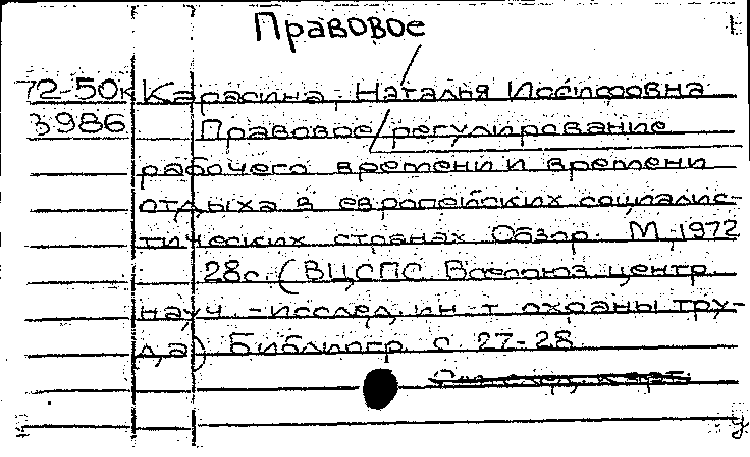 Правовое
72-50к Карасина, Наталья Иосифовна
3986 Правовое регулирование
рабочего времени и времени
отдыха в европейских социалис-
тических странах Обзор. М, 1972
28с. (ВЦСПС Всесоюз. центр.
науч. -исслед. ин-т охраны тру-
да) Библиогр. с 27-28
См след. карт